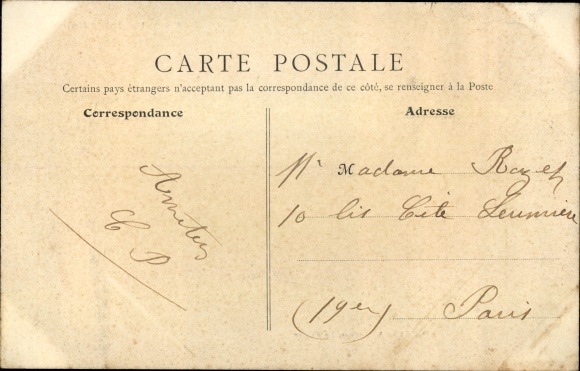 CARTE POSTALE
Certains pays étrangers n'acceptant pas la correspondance de ce côté, se renseigner à la Poste
Correspondance
Amitiés
C P
Adresse
Mr Madame Rozet
10 bis Cité Lemière
(19e) Paris